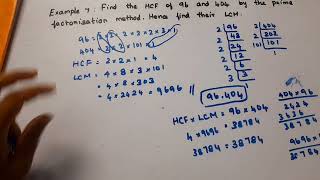 Example 7: Find the HCF of 96 and 404 by the prime
factorisation method. Hence find their LCM.
96 = 2 × 2 × 2 × 2 × 2 × 3
404 = 2 × 2 × 101
HCF = 2 × 2 × 1 = 4
LCM = 4 × 8 × 3 × 101
= 4 × 8 × 303
= 4 × 2424 = 9696
2 96
2 48
2 24
2 12
2 6
3 3
2 404
2 202
101 101
1
96,404
HCF × LCM = 96 × 404
4 × 9696 = 38784
38784 = 38784
404 × 96
2424
3636
38784
9696 ×